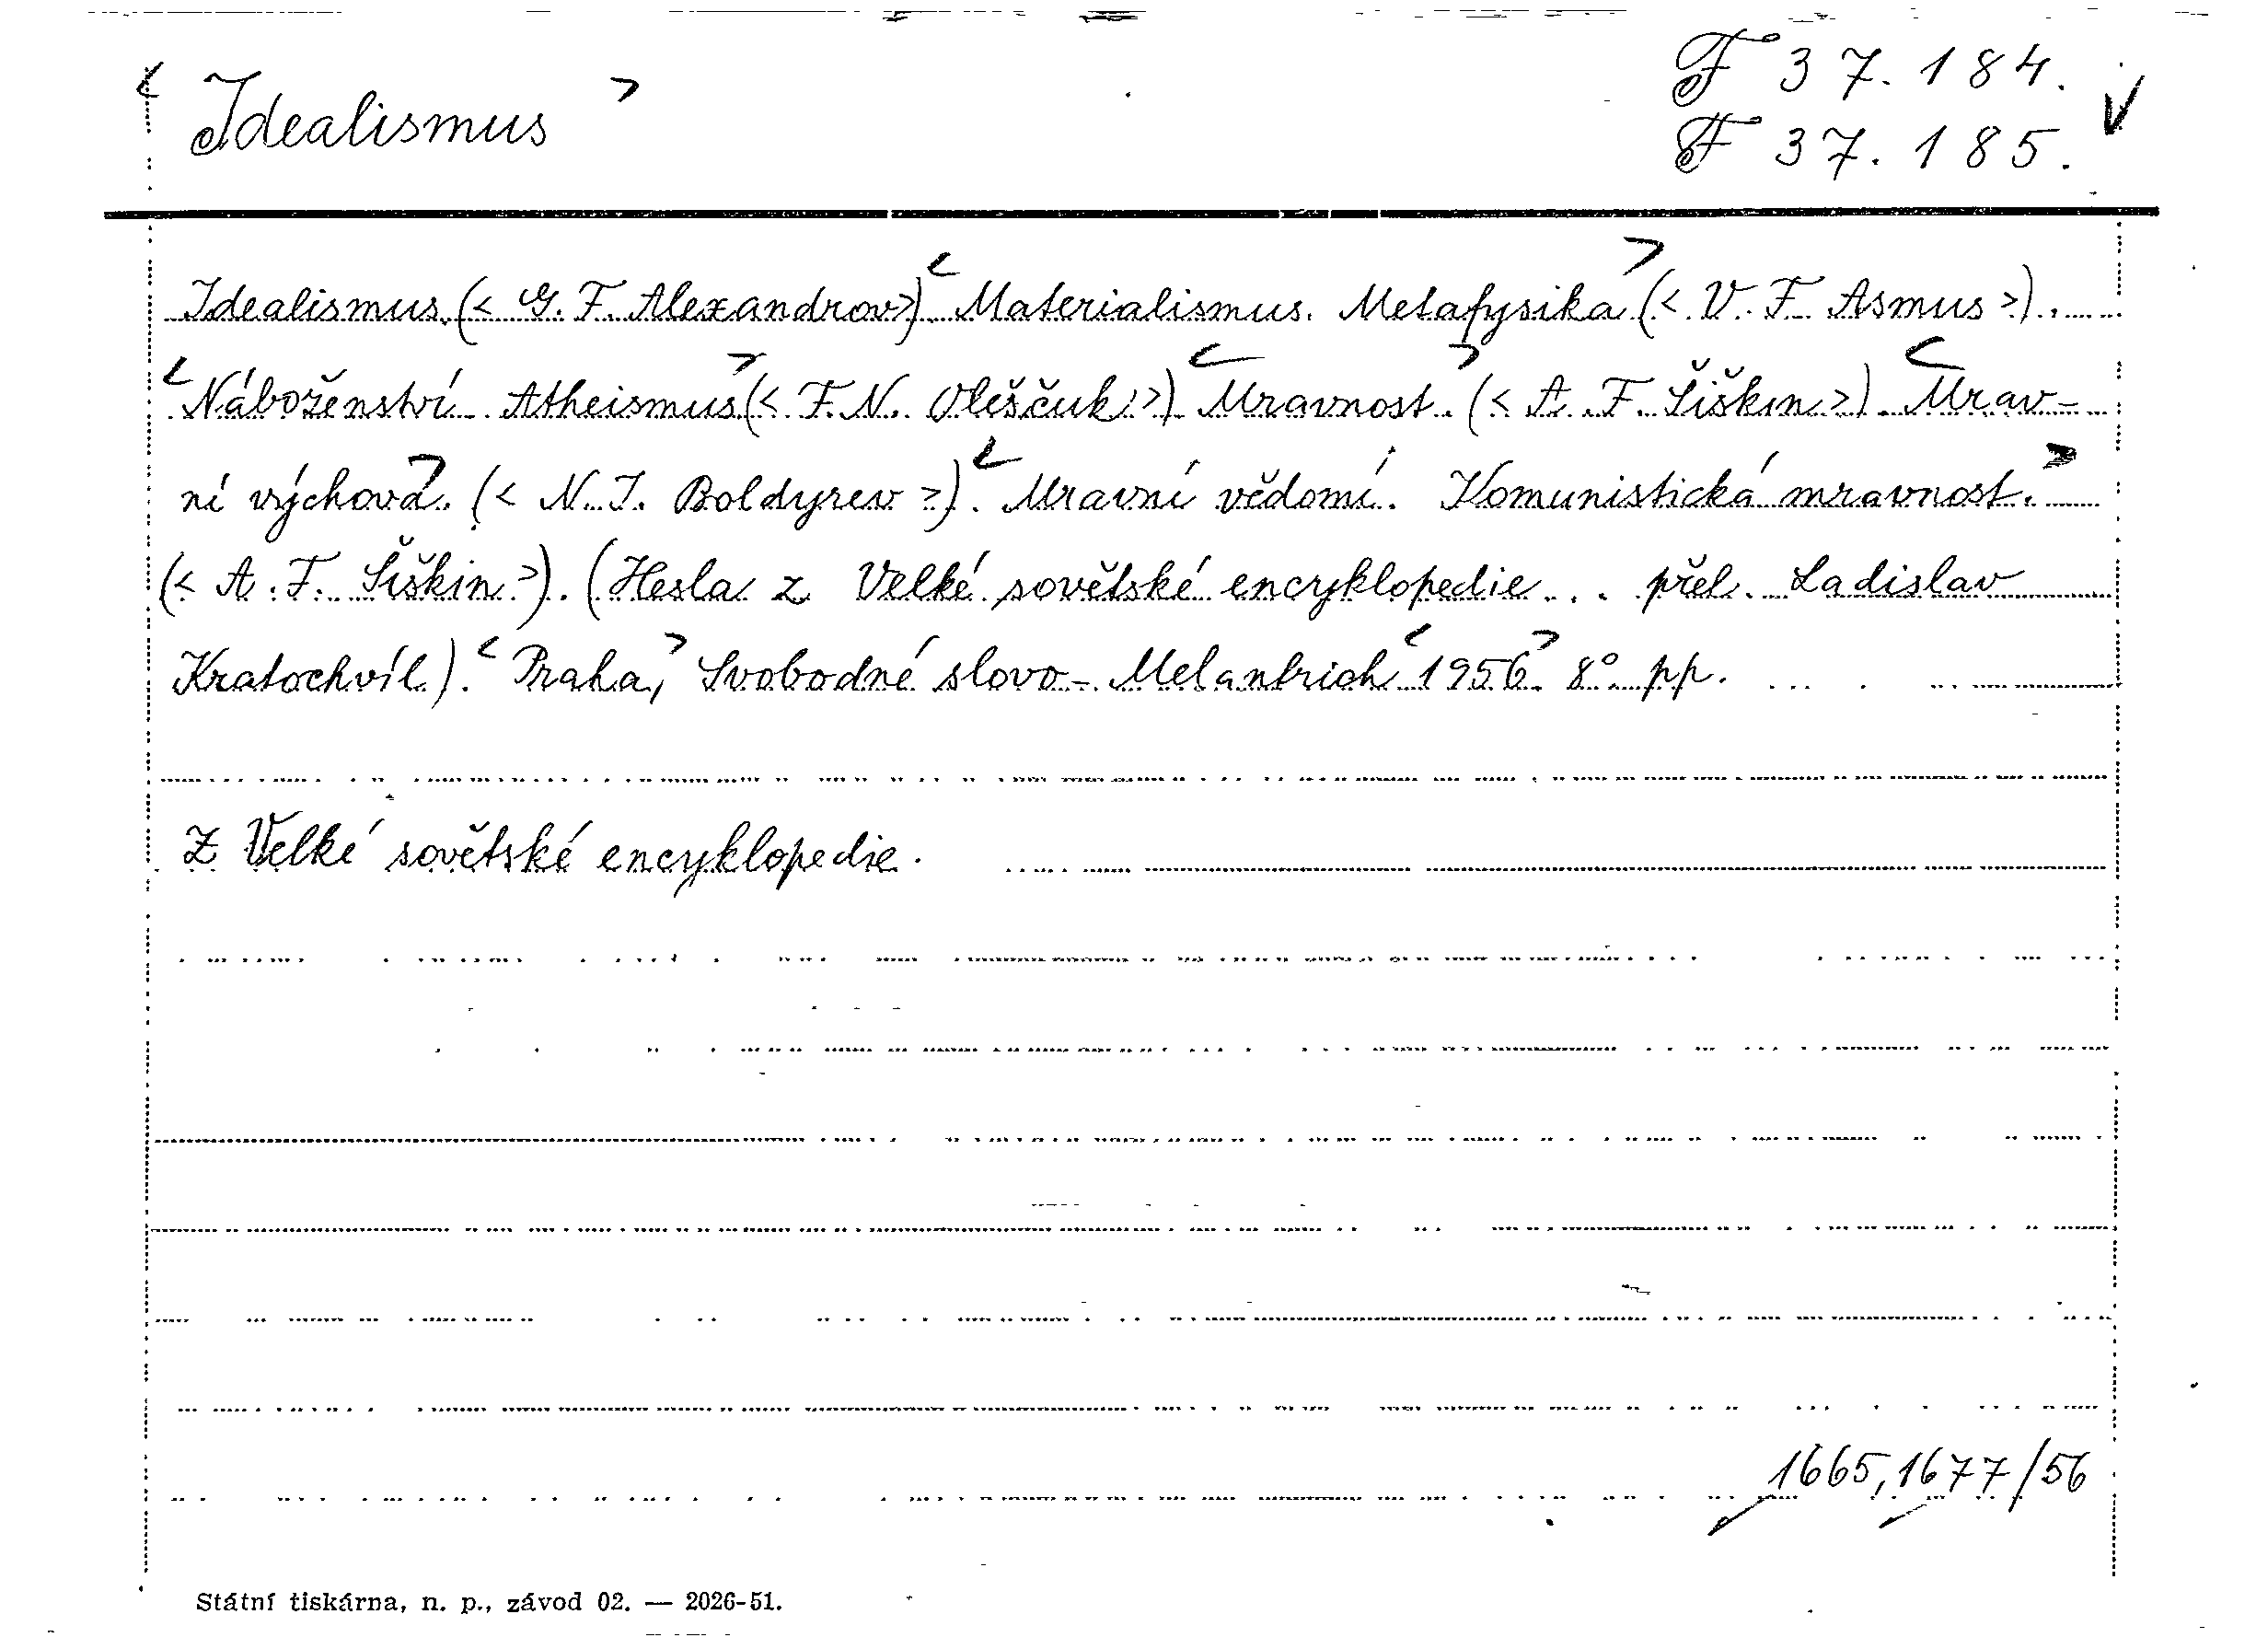 < Idealismus >
F 37.184.
F 37.185.
Idealismus. (< G. F. Alexandrov >) < Materialismus. Metafysika > (< V. F. Asmus >).
< Náboženství. Atheismus > (< F. N. Oleščuk >) < Mravnost > (< A. F. Šiškin >). < Mrav-
ní výchova >. (< N. I. Boldyrev >). < Mravní vědomí. Komunistická mravnost. >
(< A. F. Šiškin >). (Hesla z Velké sovětské encyklopedie... přel. Ladislav
Kratochvíl). < Praha, > Svobodné slovo - Melantrich < 1956 >. 8° pp.
Z Velké sovětské encyklopedie.
1665, 1677/56
Státní tiskárna, n. p., závod 02. — 2026-51.